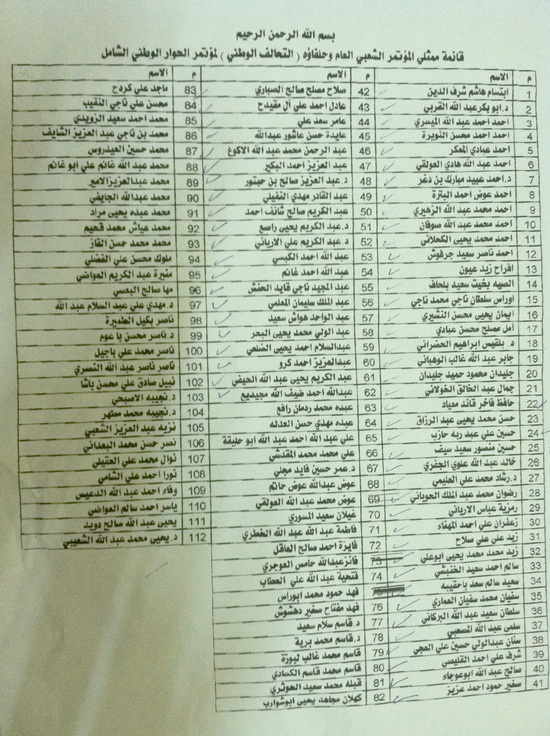 بسم الله الرحمن الرحيم
قائمة ممثلي المؤتمر الشعبي العام وحلفاؤه ( التحالف الوطني ) لمؤتمر الحوار الوطني الشامل
م الاسم
1 ابتسام هاشم شرف الدين
2 د.ابو بكر عبد الله القربي
3 احمد احمد عبد الله الميسري
4 احمد محمد حسن النويرة
5 احمد عبادي المعكر
6 احمد عبد الله هادي العولقي
7 د. احمد عبيد مبارك بن دغر
8 احمد عوض احمد البترة
9 احمد محمد عبد الله الزهيري
10 احمد محمد عبد الله صوفان
11 احمد محمد يحيى الكحلاني
12 احمد ناصر سعيد جرفوش
13 افراح زيد عيون
14 الصيه بخيت سعيد بلحاف
15 اوراس سلطان ناجي محمد ناجي
16 ايمان يحيى محسن النشيري
17 أمل مصلح محسن عبادي
18 د. بلقيس ابراهيم الحضراني
19 جابر عبد الله غالب الوهباني
20 جليدان محمود حميد جليدان
21 جمال عبد الخالق الخولاني
22 حافظ فاخر قائد معياد
23 حسن محمد يحيى عبد الرزاق
24 حسين علي عبد ربه حازب
25 حسين منصور سعيد سيف
26 خالد عبد الله علوي الجفري
27 د.رشاد محمد علي العليمي
28 رضوان محمد عبد الملك الحوباني
29 رمزية عباس الارياني
30 زعفران علي احمد المهناء
31 زيد علي علي صلاح
32 زيد محمد محمد يحيى ابوعلي
33 سالم احمد سعيد الخنبشي
34 سعيد سالم سعد باحقيبه
35 سفيان محمد سفيان العماري
36 سلطان سعيد عبد الله البركاني
37 سلمى عبد الله المصعبي
38 سنان عبدالولي حسين علي العجي
39 شرف علي احمد القليصي
40 صالح عبد الله ابوعوجاء
41 صغير حمود احمد عزيز
م الاسم
42 صلاح مصلح صالح الصيادي
43 عادل احمد علي آل مقيدح
44 عامر سعد علي
45 عايدة حسن عاشور عبدالله
46 عبد الرحمن محمد عبد الله الاكوع
47 عبد العزيز احمد البكير
48 د. عبد العزيز صالح بن حبتور
49 عبد القادر مهدي النفيلي
50 عبد الكريم صالح شائف احمد
51 د.عبد الكريم يحيى راصع
52 عبد الكريم علي الارياني
53 عبد الله احمد الكبسي
54 عبد الله احمد غانم
55 عبد المجيد ناجي قايد الحنش
56 عبد الملك سليمان المعلمي
57 عبد الواحد هواش سعيد
58 عبد الولي محمد يحيى البحر
59 عبدالسلام احمد يحيى الضلعي
60 عبدالعزيز احمد كرو
61 عبد الكريم يحيى عبد الله الحيفي
62 عبدالله احمد ضيف الله مجيديع
63 عبده محمد ردمان رافع
64 عبده مهدي حسن العدله
65 علي عبد الله احمد عبد الله ابو حليقة
66 علي محمد محمد المقدشي
67 د.عمر حسين فايد مجلي
68 عوض عبدالله عوض حاتم
69 عوض محمد عبد الله العولقي
70 غيلان سعيد المسوري
71 فاطمة عبد الله عبد الله الخطري
72 فايزة احمد صالح العاقل
73 فائز عبدالله حامس العوجري
74 فتحية عبد الله علي العطاب
فهد حمود محمد ابوراس
76 فهد مفتاح صغير دهشوش
77 د.قاسم سلام سعيد
78 د.قاسم محمد برية
79 قاسم محمد غالب لبوزة
80 قاسم محمد قاسم الكسادي
81 قبله محمد سعيد الحوثري
82 كهلان مجاهد يحيى ابوشوارب
م الاسم
83 ماجد علي كردح
84 محسن علي ناجي النقيب
85 محمد احمد سعيد الزويدي
86 محمد بن ناجي عبد العزيز الشايف
87 محمد حسين العيدروس
88 محمد عبد الله غانم علي ابو غانم
89 محمد عبدالعزيزالامير
90 محمد عبدالله الجايفي
91 محمد عبده يحيى مراد
92 محمد عياش محمد قحيم
93 محمد محمد حسن القاز
94 ملوك محسن علي الفضلي
95 منيرة عبد الكريم العواضي
96 مها صالح البعسي
97 د.مهدي علي عبد السلام عبد الله
98 ناصر بكيل الظميرة
99 د.ناصر محسن با عوم
100 ناصر محمد علي باجيل
101 ناصر ناصر عبد الله النسري
102 نبيل صادق علي محسن باشا
103 د.نجيبه الاصبحي
104 د.نجيبه محمد مطهر
105 نزيه عبد العزيز الشعبي
106 نصر حسن محمد البعداني
107 نوال محمد علي العقيلي
108 نورا احمد علي الشامي
109 وفاء احمد عبد الله الدعيس
110 ياسر احمد سالم العواضي
111 يحيى عبد الله صالح دويد
112 د.يحيى محمد عبد الله الشعيبي